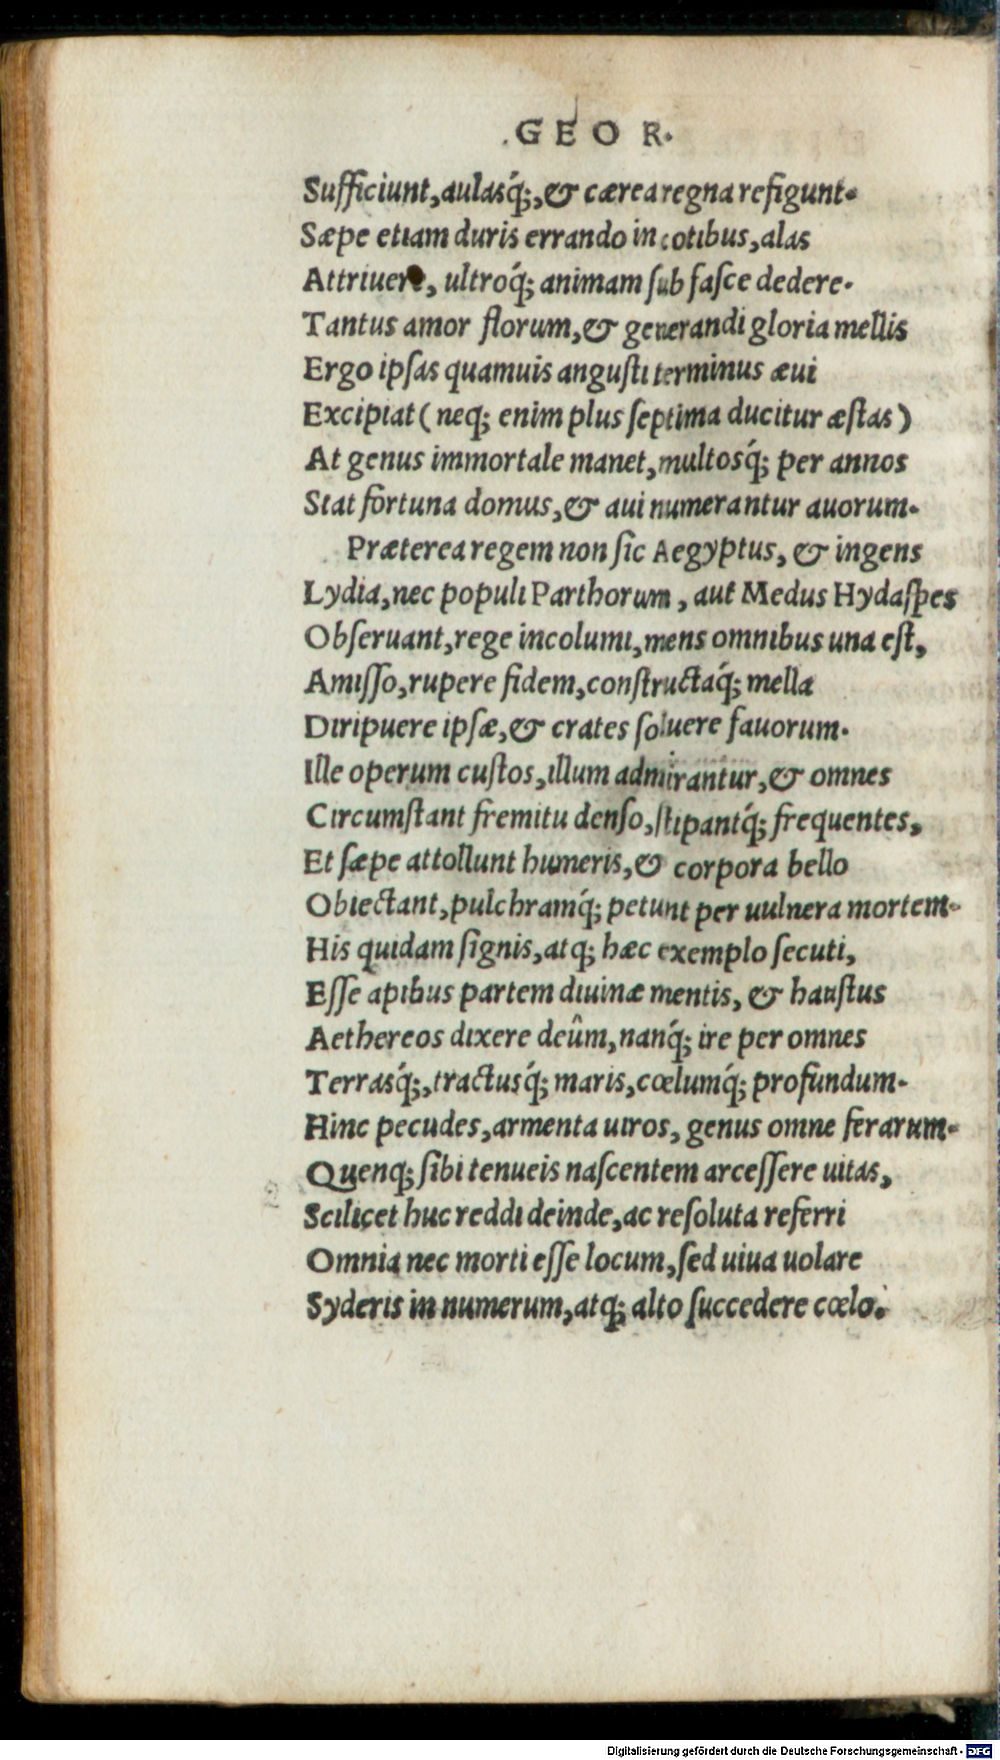 .GEOR.
Sufficiunt, aulasq́;, & cærea regna refigunt.
Sæpe etiam duris errando in cotibus, alas
Attriuere, ultroq́; animam sub fasce dedere.
Tantus amor florum, & generandi gloria mellis
Ergo ipsas quamuis angusti terminus æui
Excipiat (neq; enim plus septima ducitur æstas)
At genus immortale manet, multosq́; per annos
Stat fortuna domus, & aui numerantur auorum.
Præterea regem non sic Aegyptus, & ingens
Lydia, nec populi Parthorum, aut Medus Hydaspes
Obseruant, rege incolumi, mens omnibus una est,
Amisso, rupere fidem, constructaq́; mella
Diripuere ipsæ, & crates soluere fauorum.
Ille operum custos, illum admirantur, & omnes
Circumstant fremitu denso, stipantq́; frequentes,
Et sæpe attollunt humeris, & corpora bello
Obiectant, pulchramq́; petunt per uulnera mortem.
His quidam signis, atq; hæc exemplo secuti,
Esse apibus partem diuinæ mentis, & haustus
Aethereos dixere deûm, nanq́; ire per omnes
Terrasq́;, tractusq́; maris, cœlumq́; profundum.
Hinc pecudes, armenta uiros, genus omne ferarum.
Quenq; sibi tenueis nascentem arcessere uitas,
Scilicet huc reddi deinde, ac resoluta referri
Omnia nec morti esse locum, sed uiua uolare
Syderis in numerum, atq; alto succedere cœlo.
Digitalisierung gefördert durch die Deutsche Forschungsgemeinschaft - DFG